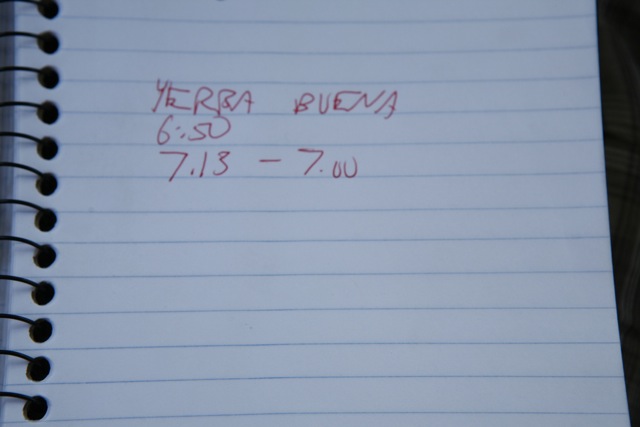 YERBA BUENA
6:50
7.13 - 7.00